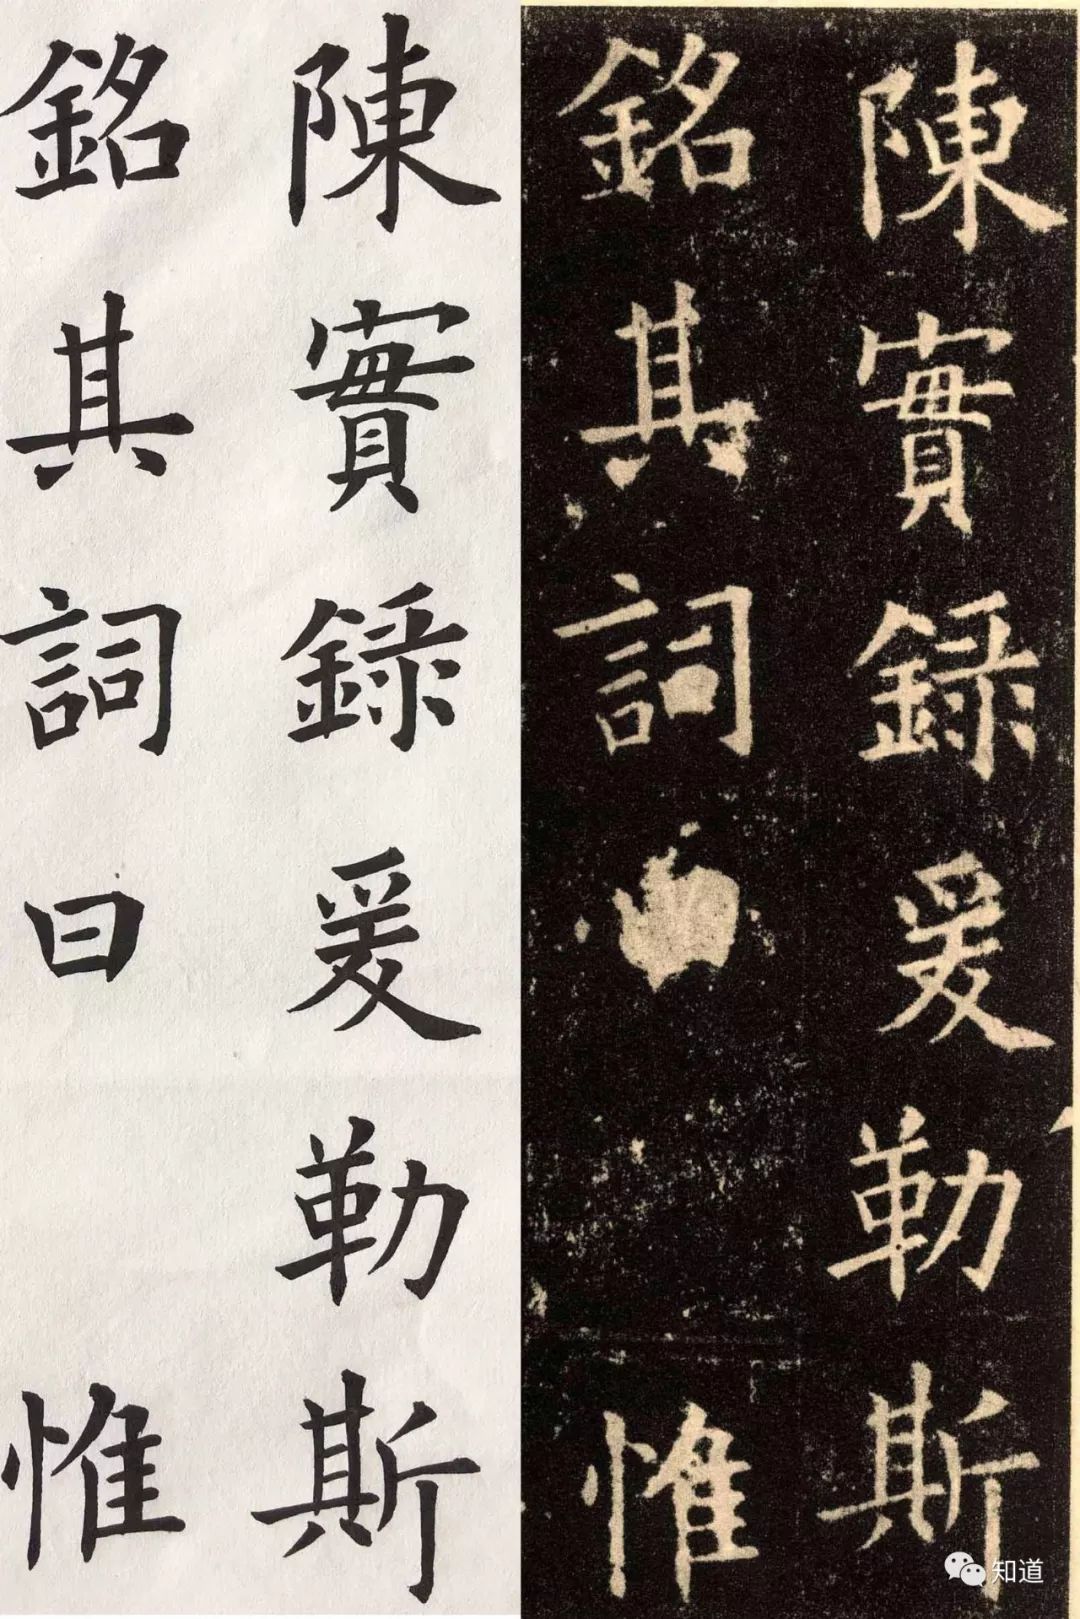 陳實錄爰勒斯
銘其詞曰惟
陳實錄爰勒斯
銘其詞曰惟
知道